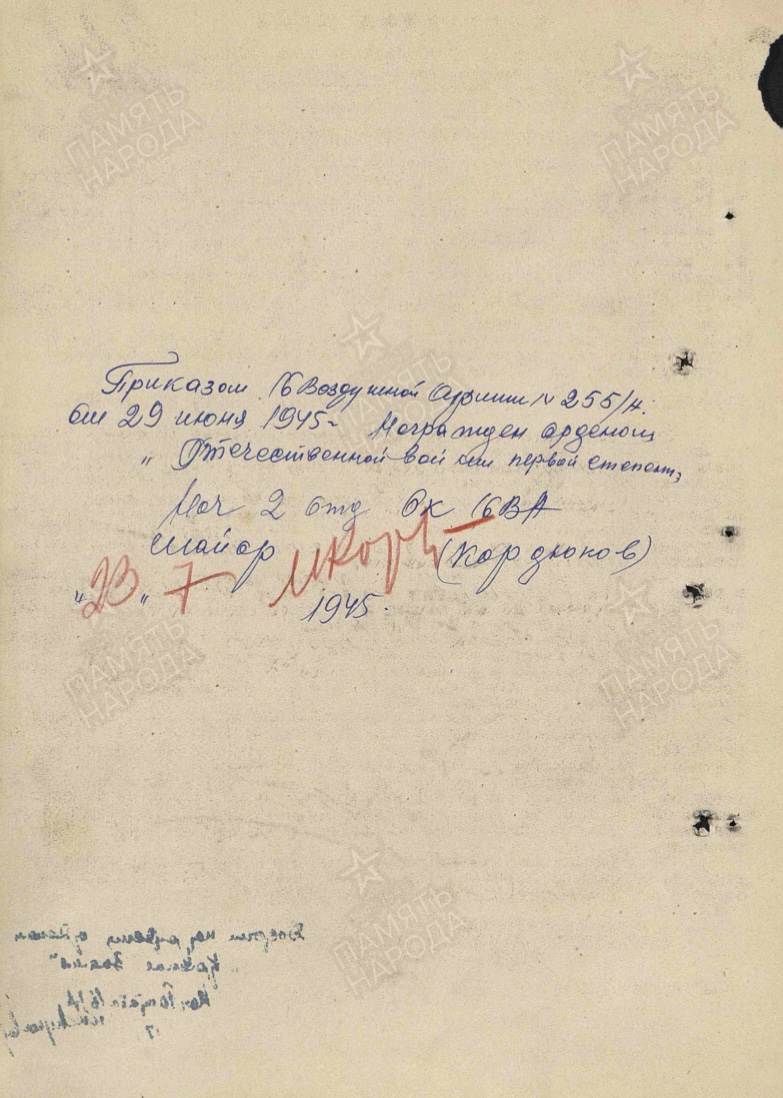 Приказом 16 Воздушной Армии № 255/н.
от 29 июня 1945г. Награжден орденом
„Отечественной войны первой степени„
Нач 2 отд ОК 16 ВА
майор (Кордюков)
„23„ 7
1945.
ПАМЯТЬ
НАРОДА
ПАМЯТЬ
НАРОДА
ПАМЯТЬ
НАРОДА
ПАМЯТЬ
НАРОДА
ПАМЯТЬ
НАРОДА
ПАМЯТЬ
НАРОДА